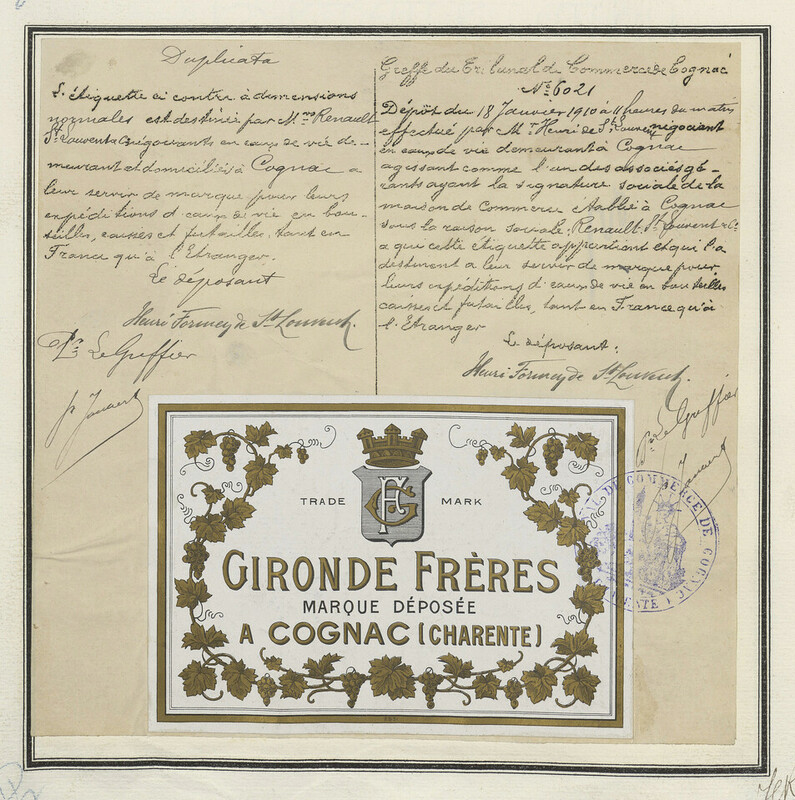 Duplicata
L'étiquette ci contre à dimensions
normales est destinée par Mrs Renault
St Louvent & négociants en eaux de vie de-
meurant et domiciliés à Cognac a
leur servir de marque pour leurs
expéditions d'eaux de vie en bou-
teilles, caisses et futailles, tant en
France qu'à l'Etranger.
Le déposant
Henri Formey de St Louvent
Pr Le Greffier
Greffe du Tribunal de Commerce de Cognac
No 6021
Dépôt du 18 Janvier 1910 à 11 heures du matin
effectué par Mr Henri de St Louvent négociant
en eaux de vie demeurant à Cognac
agissant comme l'un des associés gé-
rants ayant la signature sociale de la
maison de Commerce établie à Cognac
sous la raison sociale, Renault St Louvent & Co
a qui cette étiquette appartient et qui l'a
destinent a leur servir de marque pour
leurs expéditions d'eaux de vie en bouteilles
caisses et futailles, tant en France qu'à
l'Etranger
Le déposant.
Henri Formey de St Louvent
Pr Le Greffier
TRADE MARK
GF
GIRONDE FRÈRES
MARQUE DÉPOSÉE
A COGNAC (CHARENTE)
DE COMMERCE DE COGNAC